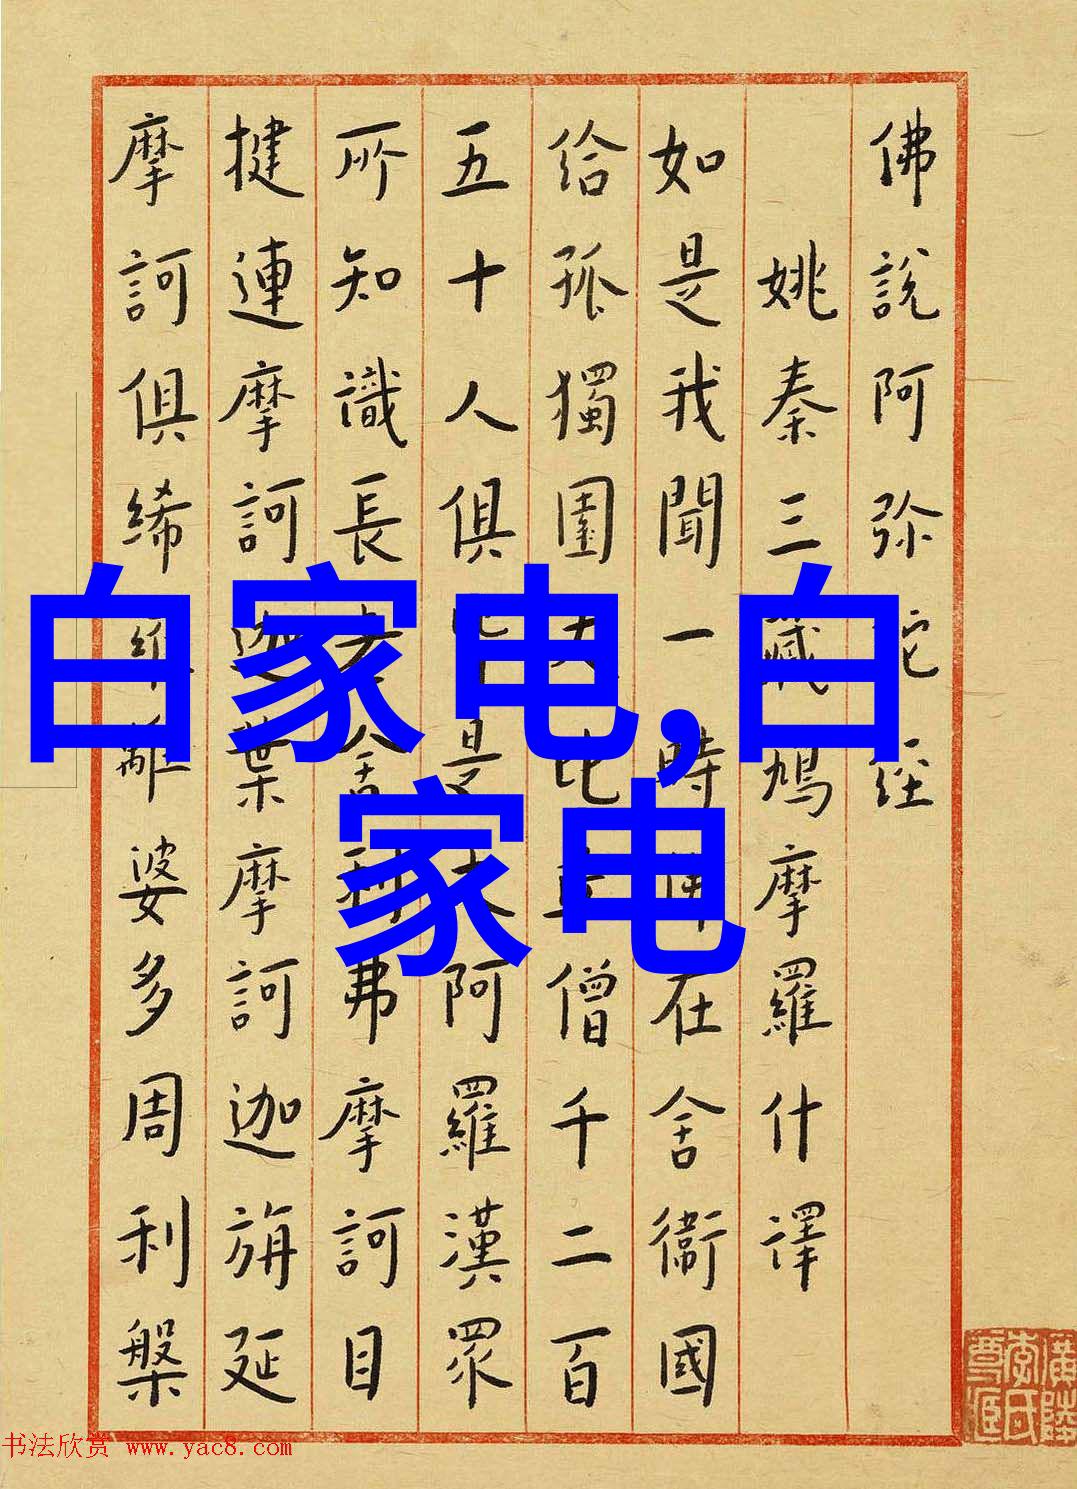 佛說阿弥陀經
姚秦三藏鳩摩羅什譯
如是我聞一時佛在舍衛國
给孤獨園大比丘僧千二百
五十人俱皆是大阿羅漢眾
所知識長老舍利弗摩訶目
揵連摩訶迦葉摩訶迦旃延
摩訶俱絺羅離婆多周利槃
白家电,白
家电
书法欣赏 www.yac8.com